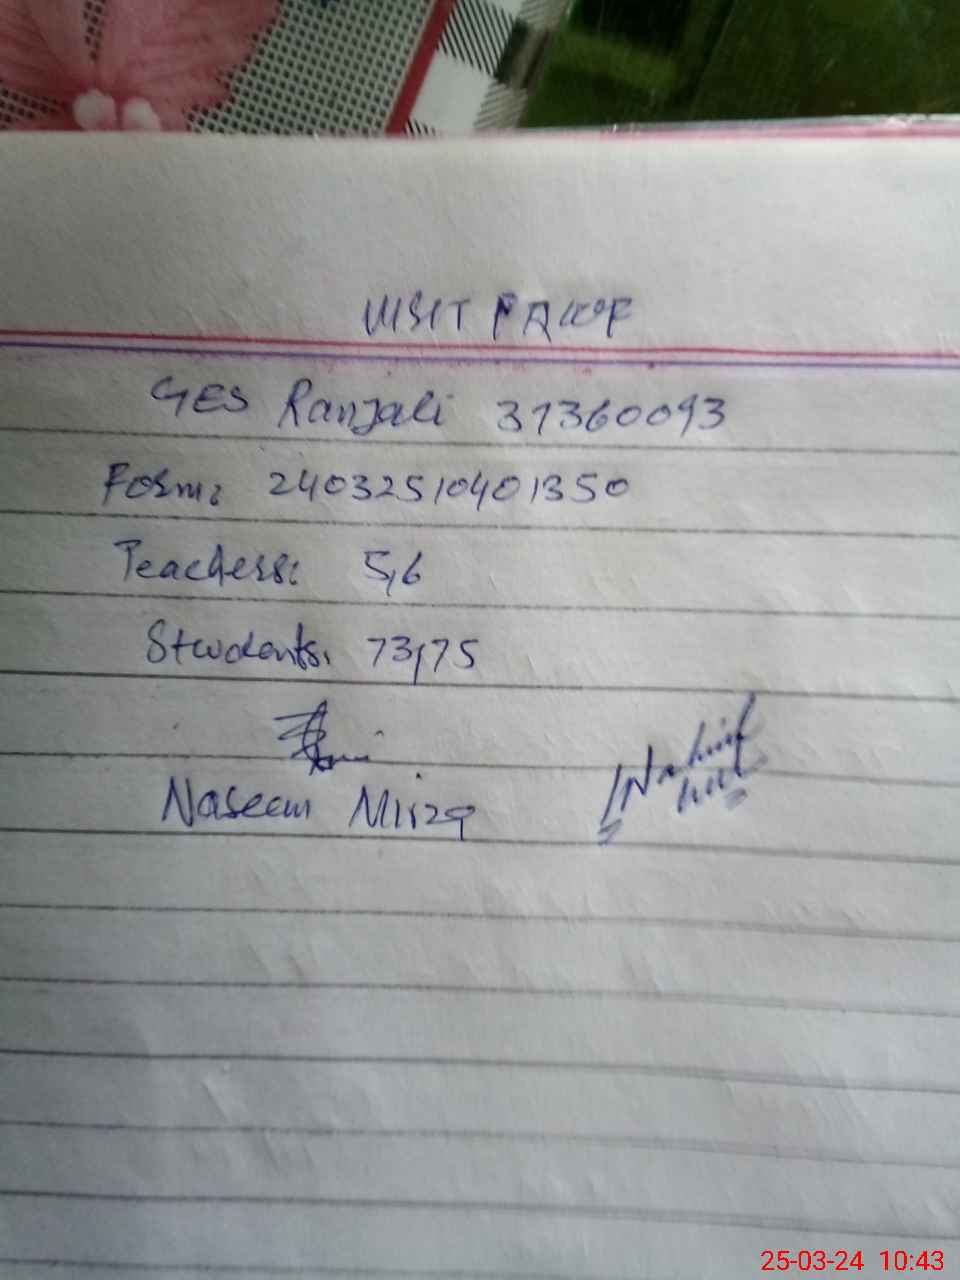 VISIT PROOF
GES Ranjali 37360093
Form: 24032510401350
Teachers: 5,6
Students. 73,75
Naseem Mirza
25-03-24 10:43